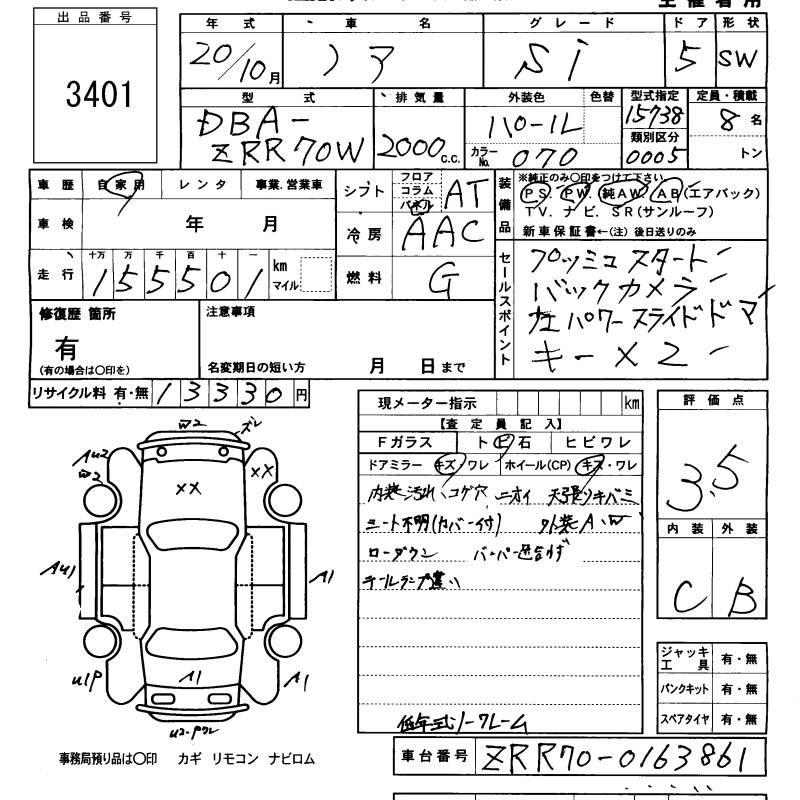 出品番号
3401
年式 車名 グレード ドア 形状
20/10月 ノア Si 5 SW
型式 排気量 外装色 色替 型式指定 定員・積載
DBA-
ZRR70W
2000 c.c.
パール
カラーNo. 070
15738
類別区分
0005
8名
トン
車歴 自家用 レンタ 事業.営業車
車検 年 月
走行 十万 万 千 百 十 一
155501 km マイル
シフト フロア コラム パネル AT
冷房 AAC
燃料 G
装備品
※純正のみ〇印をつけて下さい
PS. PW. 純AW. AB(エアバック)
TV. ナビ. SR(サンルーフ)
新車保証書←(注)後日送りのみ
セールスポイント
プッシュスタート
バックカメラ
左パワースライドドア
キー×2
修復歴 箇所
有
(有の場合は〇印を)
注意事項
名変期日の短い方 月 日まで
リサイクル料 有・無 13330円
現メーター指示 km
【査定員記入】
Fガラス トビ石 ヒビワレ
ドアミラー キズ/ワレ ホイール(CP) キズ・ワレ
内装汚れ、コゲ穴 ニオイ 天張りキバミ
シート不明(カバー付) 外装A、W
ローダウン バンパー迄合わず
テールランプ違い
低年式ノークレーム
評価点
3.5
内装 外装
C B
W2 ズレ
AU2
W2
XX XX
AU1 A1
U1P A1 A1
U2-Pワレ
ジャッキ工具 有・無
パンクキット 有・無
スペアタイヤ 有・無
事務局預り品は〇印 カギ リモコン ナビロム
車台番号 ZRR70-0163861